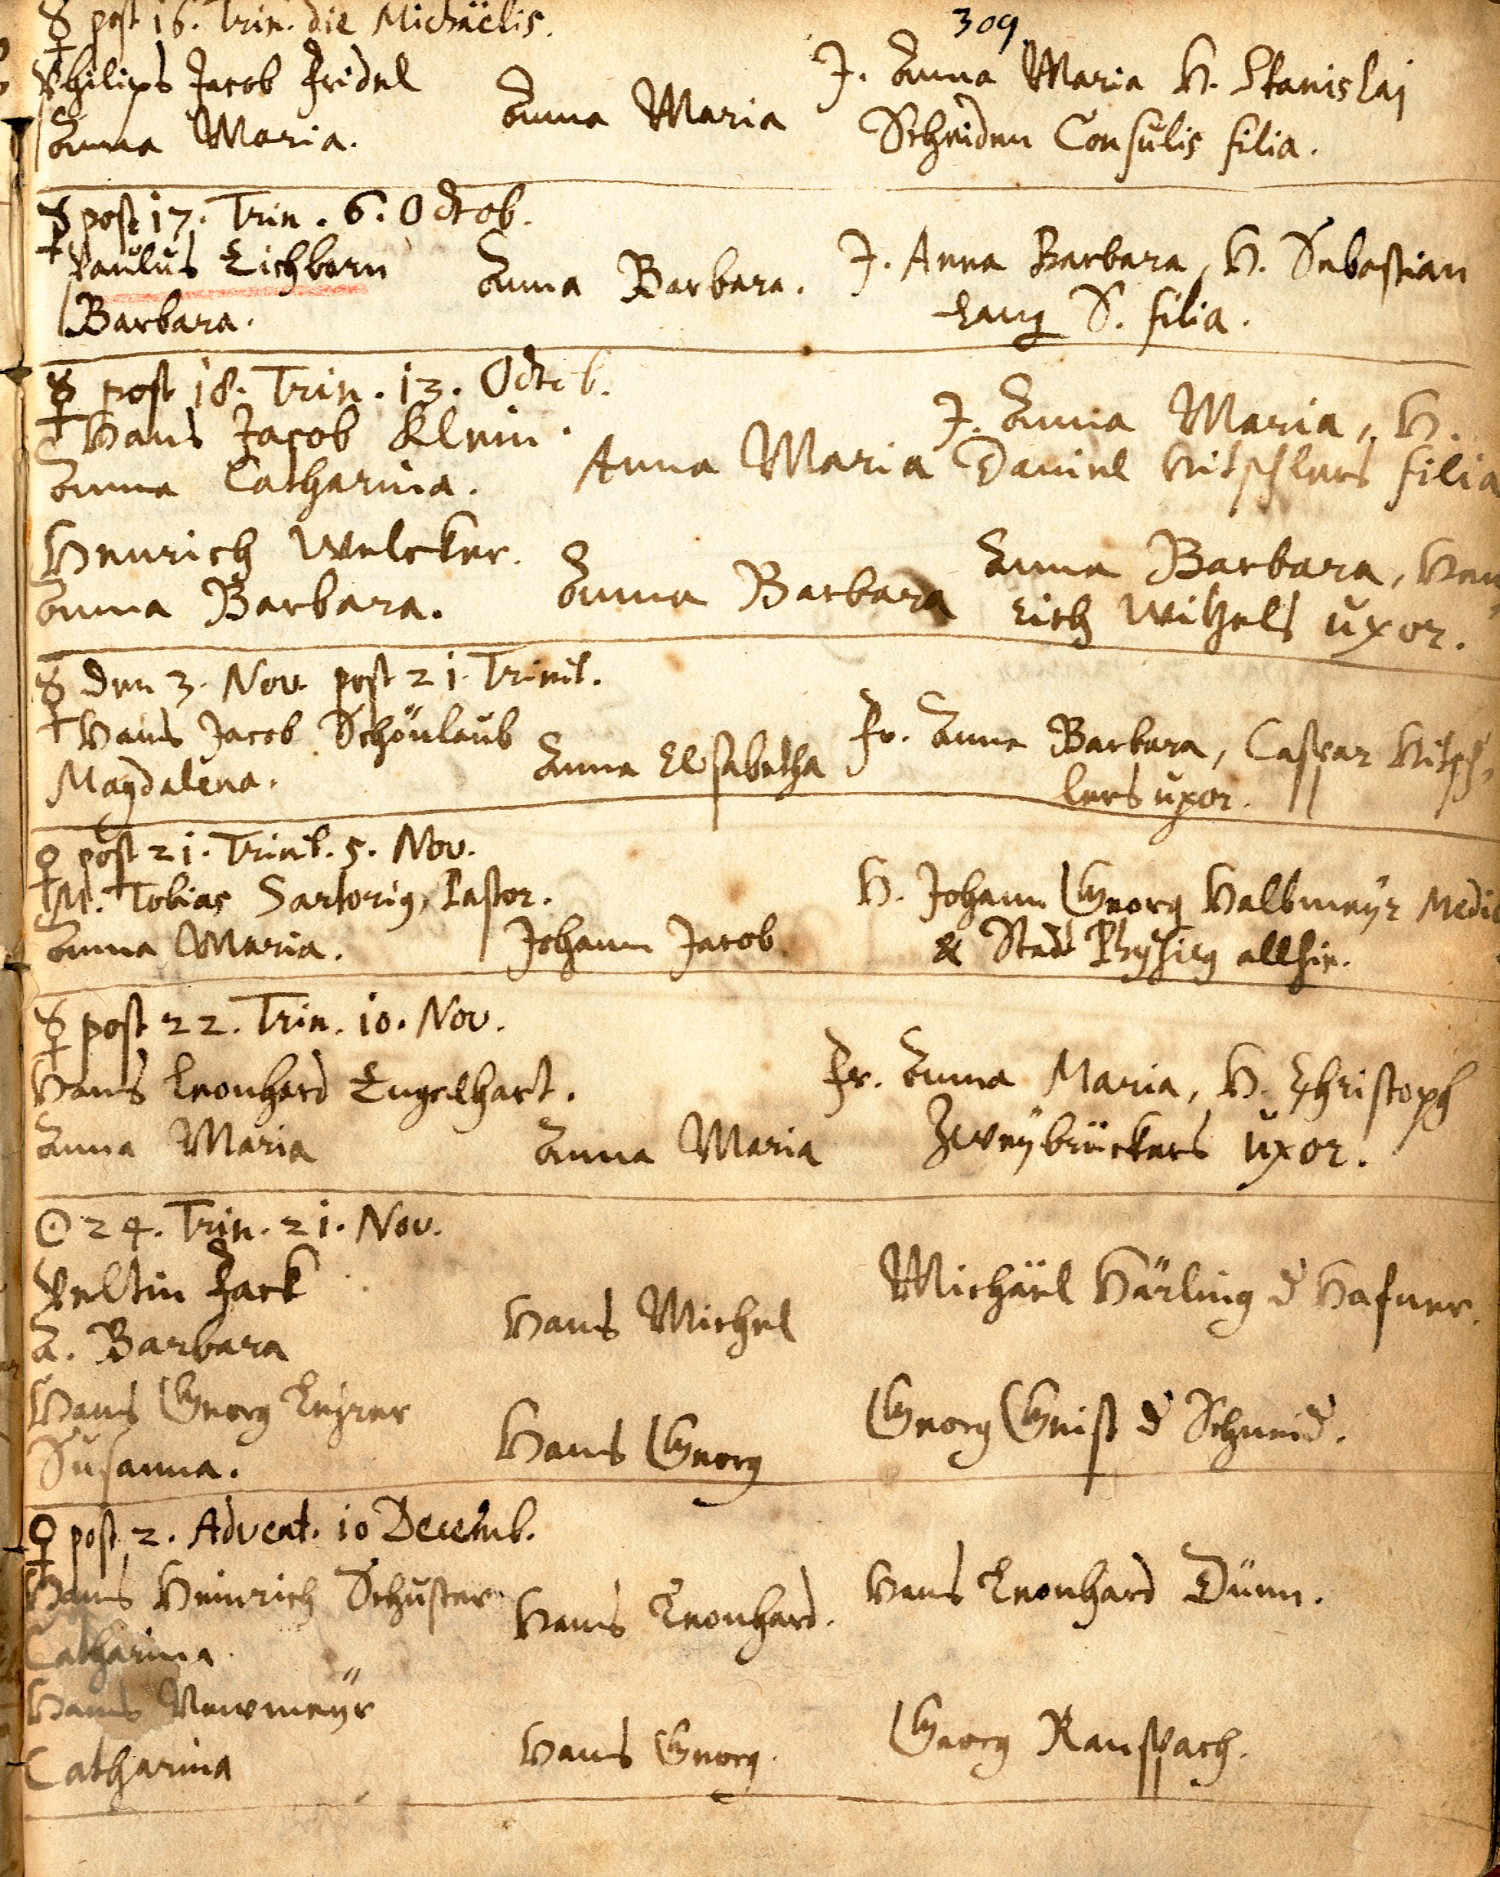 309.
☿ post 16. Trin. die Michäelis.
Philips Jacob Fridel
Anna Maria.
Anna Maria
J. Anna Maria H. Stanislaj
Scheiden Consulis filia.
☿ post 17. Trin. 6. Octob.
Paulus Eichhorn
Barbara.
Anna Barbara.
J. Anna Barbara, H. Sebastian
Lang S. filia.
☿ post 18. Trin. 13. Octob.
Hans Jacob Klein.
Anna Catharina.
Anna Maria
J. Anna Maria, H.
Daniel Hitschlers filia
Henrich Welcker.
Anna Barbara.
Anna Barbara
Anna Barbara, Hen
rich Witzels uxor.
☿ den 3. Nov. post 21. Trinit.
Hans Jacob Schönlaub
Magdalena.
Anna Elisabetha
Fr. Anna Barbara, Caspar Hitsch,
lers uxor.
♀ post 21. Trinit. 5. Nov.
M. Tobias Sartorius, Pastor.
Anna Maria.
Johann Jacob
H. Johann Georg Halbmeyr Medic
& Stad Physicus allhie.
☿ post 22. Trin. 10. Nov.
Hans Leonhard Engelhart.
Anna Maria
Anna Maria
Fr. Anna Maria, H. Christoph
Zweybrückers uxor.
☉ 24. Trin. 21. Nov.
Veltin Fack
A. Barbara
Hans Michel
Michäel Härling d Hafner.
Hans Georg
Susanna.
Hans Georg
Georg Geist d Schmid.
♀ post 2. Advent. 10 Decemb.
Hans Heinrich Schuster
Catharina.
Hans Leonhard.
Hans Leonhard Dünn.
Hans Newmeyr
Catharina
Hans Georg.
Georg Rauspach.